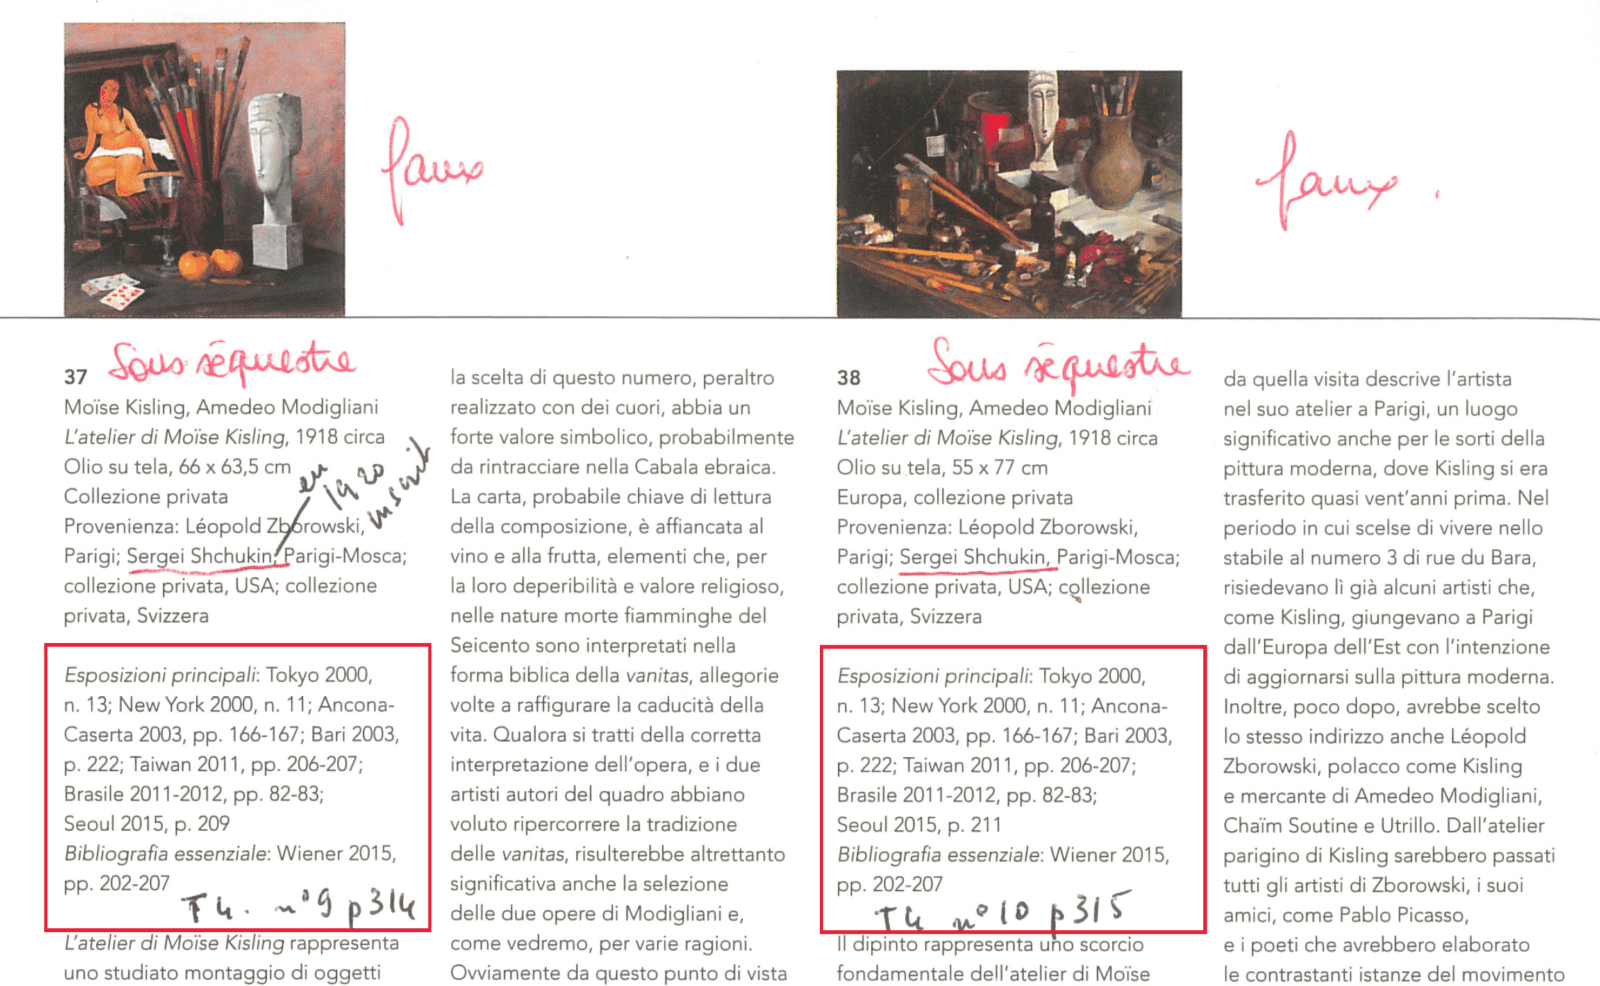 faux
faux.
37 Sous séquestre
Moïse Kisling, Amedeo Modigliani
L'atelier di Moïse Kisling, 1918 circa
Olio su tela, 66 x 63,5 cm
Collezione privata
Provenienza: Léopold Zborowski,
Parigi; Sergei Shchukin, Parigi-Mosca;
collezione privata, USA; collezione
privata, Svizzera
en
1920
inscrit
Esposizioni principali: Tokyo 2000,
n. 13; New York 2000, n. 11; Ancona-
Caserta 2003, pp. 166-167; Bari 2003,
p. 222; Taiwan 2011, pp. 206-207;
Brasile 2011-2012, pp. 82-83;
Seoul 2015, p. 209
Bibliografia essenziale: Wiener 2015,
pp. 202-207
T4. n°9 p314
L'atelier di Moïse Kisling rappresenta
uno studiato montaggio di oggetti
la scelta di questo numero, peraltro
realizzato con dei cuori, abbia un
forte valore simbolico, probabilmente
da rintracciare nella Cabala ebraica.
La carta, probabile chiave di lettura
della composizione, è affiancata al
vino e alla frutta, elementi che, per
la loro deperibilità e valore religioso,
nelle nature morte fiamminghe del
Seicento sono interpretati nella
forma biblica della vanitas, allegorie
volte a raffigurare la caducità della
vita. Qualora si tratti della corretta
interpretazione dell'opera, e i due
artisti autori del quadro abbiano
voluto ripercorrere la tradizione
delle vanitas, risulterebbe altrettanto
significativa anche la selezione
delle due opere di Modigliani e,
come vedremo, per varie ragioni.
Ovviamente da questo punto di vista
38 Sous séquestre
Moïse Kisling, Amedeo Modigliani
L'atelier di Moïse Kisling, 1918 circa
Olio su tela, 55 x 77 cm
Europa, collezione privata
Provenienza: Léopold Zborowski,
Parigi; Sergei Shchukin, Parigi-Mosca;
collezione privata, USA; collezione
privata, Svizzera
Esposizioni principali: Tokyo 2000,
n. 13; New York 2000, n. 11; Ancona-
Caserta 2003, pp. 166-167; Bari 2003,
p. 222; Taiwan 2011, pp. 206-207;
Brasile 2011-2012, pp. 82-83;
Seoul 2015, p. 211
Bibliografia essenziale: Wiener 2015,
pp. 202-207
T4 n°10 p315
Il dipinto rappresenta uno scorcio
fondamentale dell'atelier di Moïse
da quella visita descrive l'artista
nel suo atelier a Parigi, un luogo
significativo anche per le sorti della
pittura moderna, dove Kisling si era
trasferito quasi vent'anni prima. Nel
periodo in cui scelse di vivere nello
stabile al numero 3 di rue du Bara,
risiedevano lì già alcuni artisti che,
come Kisling, giungevano a Parigi
dall'Europa dell'Est con l'intenzione
di aggiornarsi sulla pittura moderna.
Inoltre, poco dopo, avrebbe scelto
lo stesso indirizzo anche Léopold
Zborowski, polacco come Kisling
e mercante di Amedeo Modigliani,
Chaïm Soutine e Utrillo. Dall'atelier
parigino di Kisling sarebbero passati
tutti gli artisti di Zborowski, i suoi
amici, come Pablo Picasso,
e i poeti che avrebbero elaborato
le contrastanti istanze del movimento